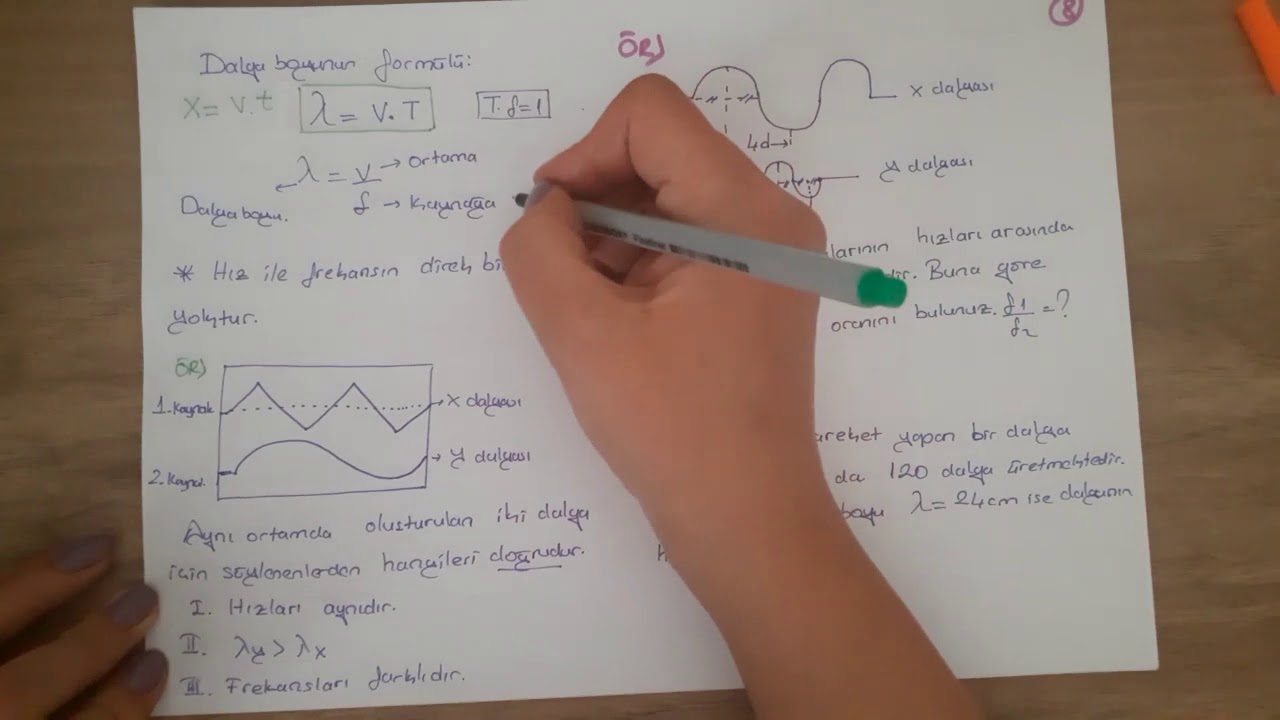 Dalga boyunun formülü:
x = v.t
λ = V.T
T.f=1
λ = V/f
→ Ortama
→ Kaynağa
Dalga boyu.
* Hız ile frekansın direk
yoktur.
ÖR)
1. Kaynak
→ x dalgası
2. Kaynak.
→ y dalgası
Aynı ortamda oluşturulan iki dalga
için söylenenlerden hangileri doğrudur.
I. Hızları aynıdır.
II. λy > λx
III. Frekansları farklıdır.
8
ÖR)
x dalgası
4d→
y dalgası
hızları arasında
Buna göre
oranını bulunuz. f1/f2 = ?
yapan bir dalga
da 120 dalga üretmektedir.
boyu λ = 24cm ise dalganın